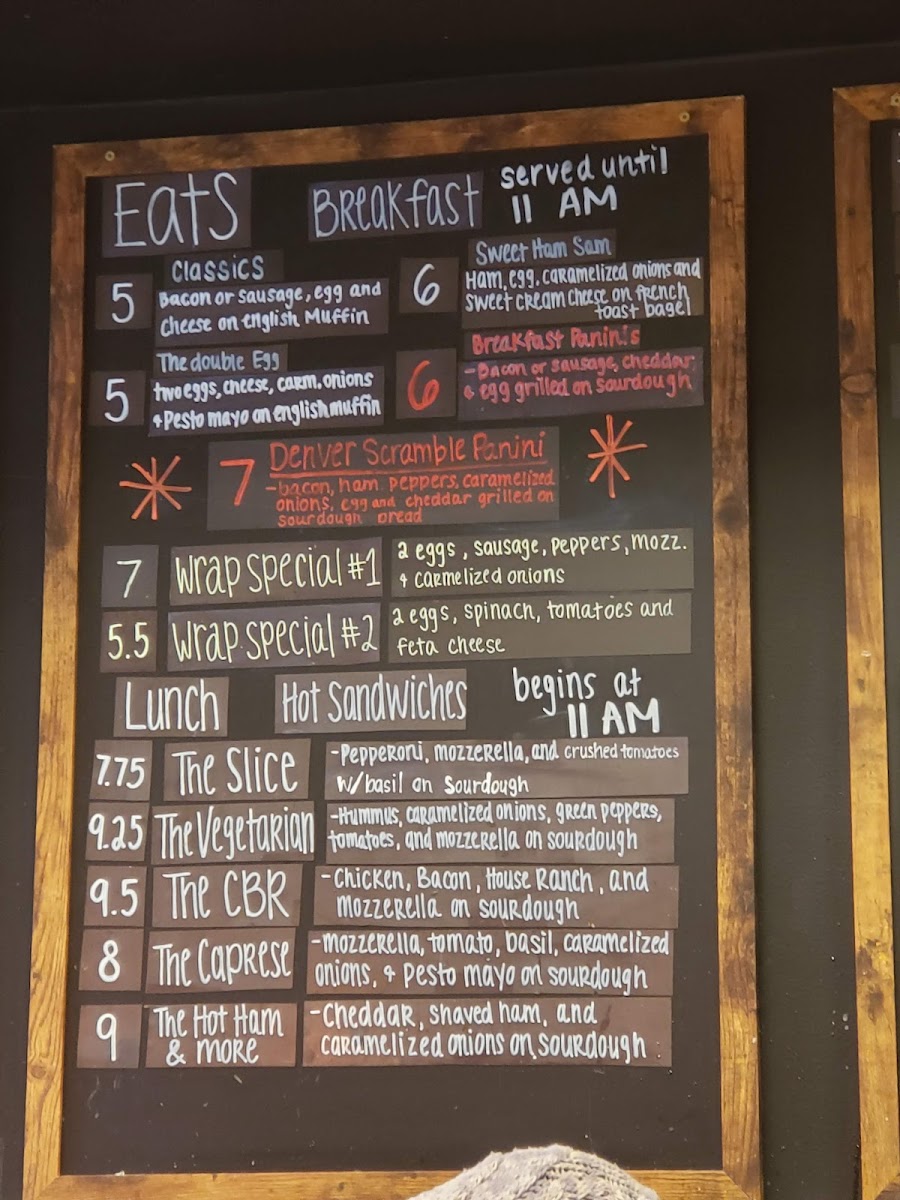 Eats Breakfast served until
11 AM
5 Classics
Bacon or sausage, egg and
cheese on english Muffin
6 Sweet Ham Sam
Ham, egg, caramelized onions and
sweet cream cheese on french
toast bagel
5 The double Egg
two eggs, cheese, carm. onions
+ Pesto mayo on english muffin
6 Breakfast Panini's
-Bacon or sausage, cheddar,
& egg grilled on sourdough
7 Denver Scramble Panini
-bacon, ham, peppers, caramelized
onions, egg and cheddar grilled on
sourdough bread
7 Wrap special #1 2 eggs, sausage, peppers, mozz.
+ carmelized onions
5.5 Wrap special #2 2 eggs, spinach, tomatoes and
feta cheese
Lunch Hot Sandwiches begins at
11 AM
7.75 The Slice -Pepperoni, mozzerella, and crushed tomatoes
w/basil on Sourdough
9.25 The Vegetarian -Hummus, caramelized onions, green peppers,
tomatoes, and mozzerella on sourdough
9.5 The CBR -Chicken, Bacon, House Ranch, and
mozzerella on sourdough
8 The Caprese -mozzerella, tomato, basil, caramelized
onions, + Pesto mayo on sourdough
9 The Hot Ham
& more
-Cheddar, shaved ham, and
caramelized onions on sourdough